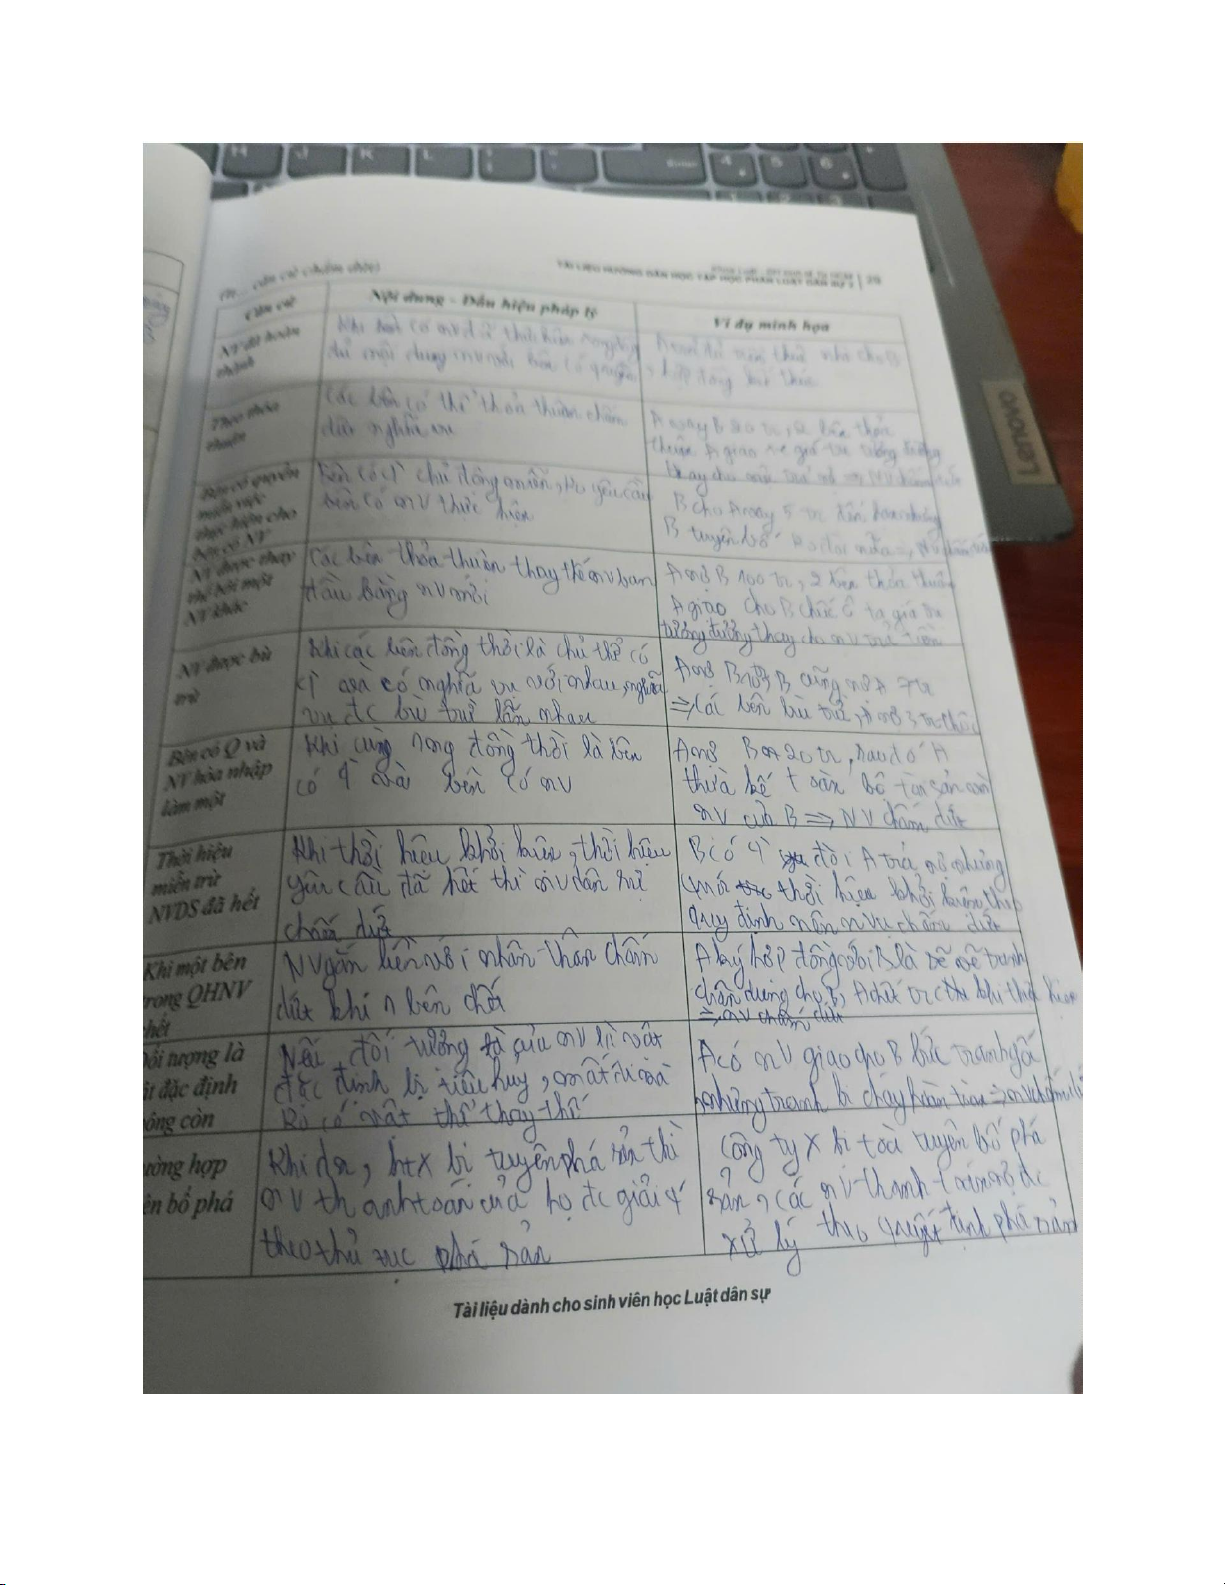 TÀI LIỆU HƯỚNG DẪN HỌC TẬP HỌC PHẦN LUẬT DÂN SỰ 2 | 29
căn cứ (chấm dứt)
Căn cứ
Nội dung - Dấu hiệu pháp lý
Ví dụ minh họa
NV đã hoàn
thành
Khi bên có nv đã thực hiện
đủ nội dung nv với bên có quyền
Theo thỏa
thuận
Các bên có thể thỏa thuận chấm
dứt nghĩa vụ
A vay B 20 tr, 2 bên thỏa
thuận A giao xe giá trị tương đương
thay cho
Bên có quyền
miễn việc
thực hiện cho
bên có NV
Bên có q` chủ động miễn, ko yêu cầu
bên có nv thực hiện
B cho A vay 5 tr
B tuyên bố ko đòi nữa
NV được thay
thế bởi một
NV khác
Các bên thỏa thuận thay thế nv ban
đầu bằng nv mới
A nợ B 100 tr, 2 bên thỏa thuận
A giao cho B chiếc ô tô giá trị
tương đương thay cho nv trả tiền
NV được bù
trừ
Khi các bên đồng thời là chủ thể có
q` và có nghĩa vụ với nhau, nghĩa
vụ đc bù trừ lẫn nhau
A nợ B B cũng nợ A 7tr
=> Các bên bù trừ, A nợ 3 tr
Bên có Q và
NV hòa nhập
làm một
Khi cùng 1 đồng thời là bên
có q` và bên có nv
A nợ B 20 tr, sau đó A
thừa kế toàn bộ tài sản
nv của B => NV chấm dứt
Thời hiệu
miễn trừ
NVDS đã hết
Khi thời hiệu khởi kiện, thời hiệu
yêu cầu đã hết thì nv dân sự
chấm dứt
B có q` đòi A trả nợ nhưng
quá thời hiệu khởi kiện theo
quy định nên nvụ chấm dứt
Khi một bên
trong QHNV
chết
NV gắn liền với nhân thân chấm
dứt khi 1 bên chết
A ký hợp đồng với B là sẽ vẽ tranh
chân dung cho B, A chết trc khi thực hiện
=> nv chấm dứt
tượng là
đặc định
không còn
Nếu đối tượng của nv là vật
đặc định bị tiêu hủy, mất đi mà
ko có vật thể thay thế
A có nv giao cho B bức tranh gỗ
nhưng tranh bị cháy hoàn toàn => nv chấm dứt
trường hợp
bố phá
Khi dn, htx bị tuyên phá sản thì
nv thanh toán của họ đc giải q'
theo thủ tục phá sản
Công ty X bị toà tuyên bố phá
sản, các nv thanh toán nợ đc
xử lý theo quyết định phá sản
Tài liệu dành cho sinh viên học Luật dân sự
Lenovo